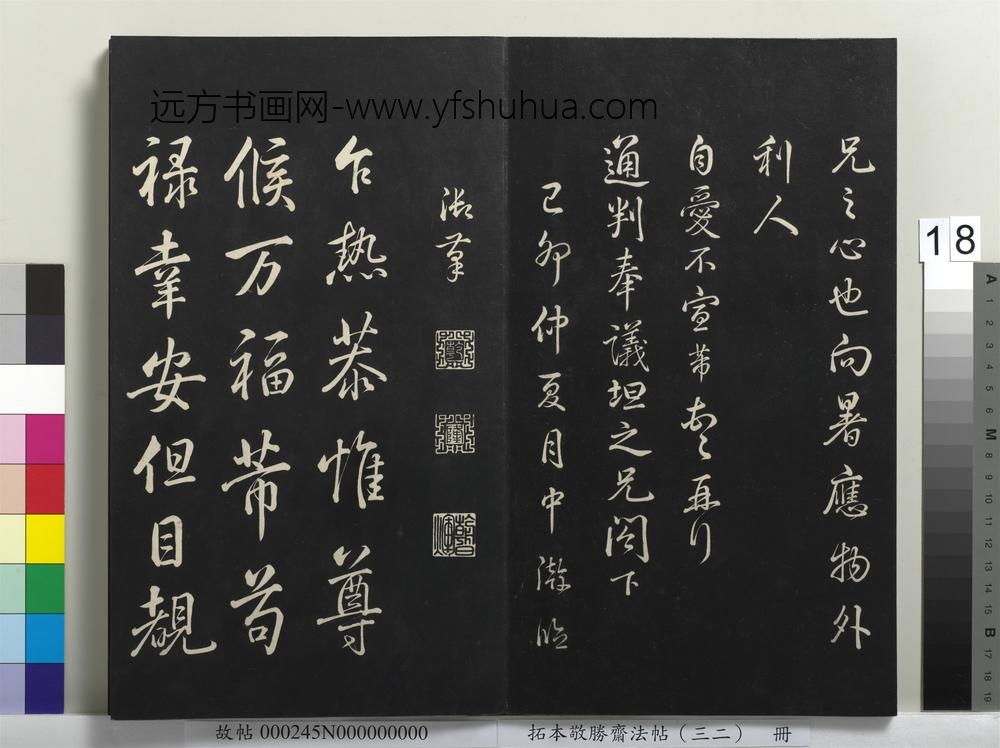 远方书画网-www.yfshuhua.com
兄之心也向暑應物外
利人
自愛不宣芾頓首再行
通判奉議坦之兄閤下
己卯仲夏月中澣臨
乍熱恭惟尊
候万福芾苟
禄幸安但目覩
18
故帖 000245N000000000
拓本敬勝齋法帖（三二） 冊
A
1
2
3
4
5
6
M
8
9
10
11
12
13
14
15
B
17
18
19